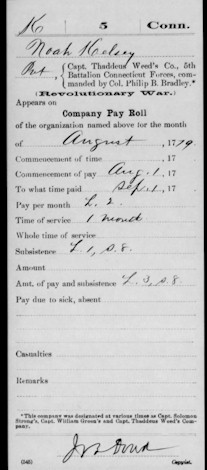 K 5 Conn.
Noah Kelsey
Pvt., Capt. Thaddeus Weed's Co., 5th
Battalion Connecticut Forces, com-
manded by Col. Philip B. Bradley.*
(Revolutionary War.)
Appears on
Company Pay Roll
of the organization named above for the month
of August, 1779.
Commencement of time, 17
Commencement of pay Aug. 1, 17
To what time paid Sept. 1, 17
Pay per month £. 2.
Time of service 1 month
Whole time of service
Subsistence £. 1, s. 8.
Amount
Amt. of pay and subsistence £. 3, s. 8
Pay due to sick, absent
Casualties
Remarks
*This company was designated at various times as Capt. Solomon
Strong's, Capt. William Green's and Capt. Thaddeus Weed's Com-
pany.
(545) Copyist.